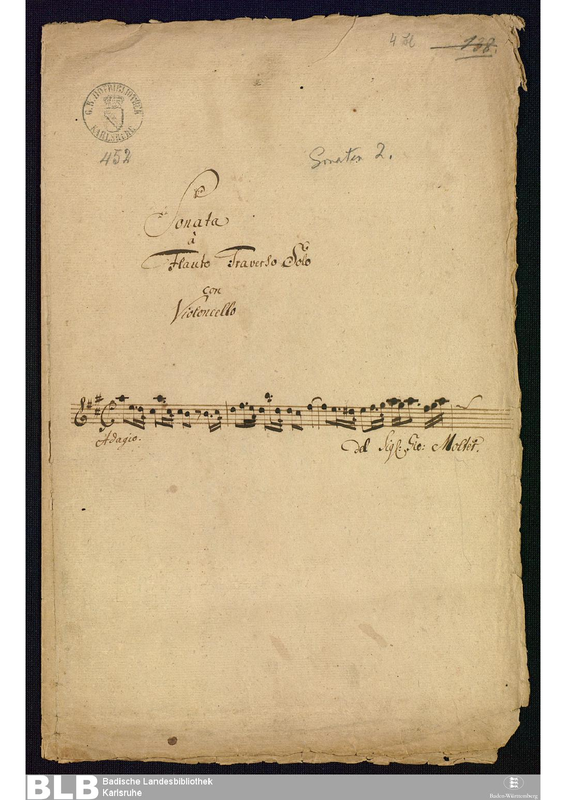 4 Bl
138.
G. B. HOFBIBLIOTHEK
KARLSRUHE
452
Sonaten 2.
Sonata
à
Flauto Traverso Solo
con
Violoncello
Adagio.
Del Sigr: Gio: Molter.
BLB Badische Landesbibliothek
Karlsruhe
Baden-Württemberg